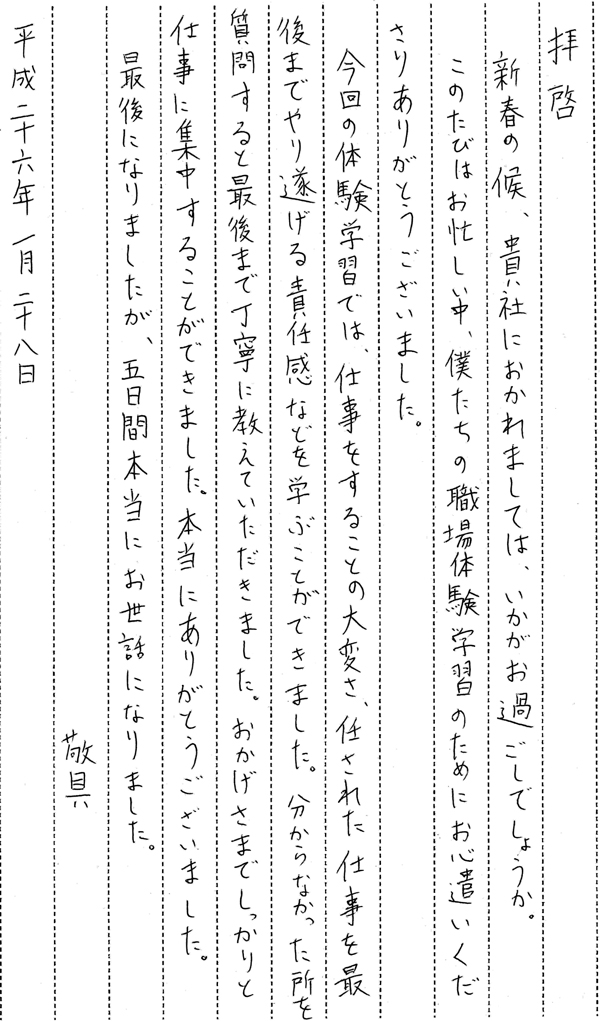 拝啓
新春の候、貴社におかれましては、いかがお過ごしでしょうか。
このたびはお忙しい中、僕たちの職場体験学習のためにお心遣いくだ
さりありがとうございました。
今回の体験学習では、仕事をすることの大変さ、任された仕事を最
後までやり遂げる責任感などを学ぶことができました。分からなかった所を
質問すると最後まで丁寧に教えていただきました。おかげさまでしっかりと
仕事に集中することができました。本当にありがとうございました。
最後になりましたが、五日間本当にお世話になりました。
敬具
平成二十六年一月二十八日